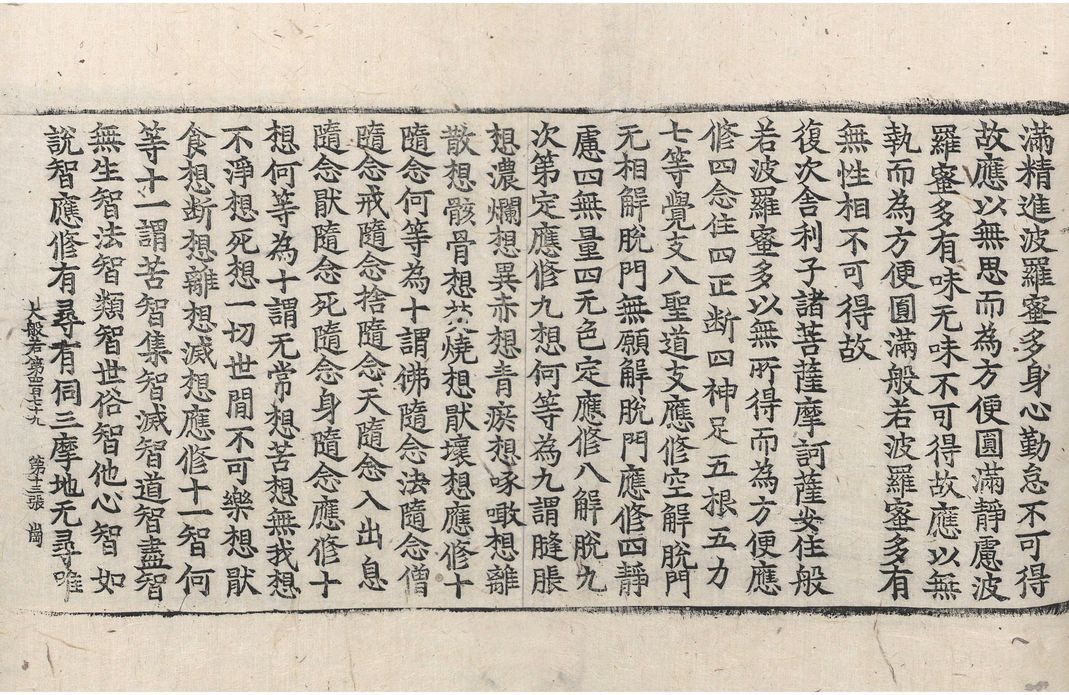 滿精進波羅蜜多身心勤怠不可得
故應以無思而為方便圓滿靜慮波
羅蜜多有味无味不可得故應以無
執而為方便圓滿般若波羅蜜多有
無性相不可得故
復次舍利子諸菩薩摩訶薩安住般
若波羅蜜多以無所得而為方便應
修四念住四正断四神足五根五力
七等覺支八聖道支應修空解脫門
无相解脫門無願解脫門應修四靜
慮四無量四无色定應修八解脫九
次第定應修九想何等為九謂膖脹
想濃爛想異赤想青瘀想啄噉想離
散想骸骨想焚燒想猒壞想應修十
隨念何等為十謂佛隨念法隨念僧
隨念戒隨念捨隨念天隨念入出息
隨念猒隨念死隨念身隨念應修十
想何等為十謂无常想苦想無我想
不淨想死想一切世間不可樂想猒
食想断想離想滅想應修十一智何
等十一謂苦智集智滅智道智盡智
無生智法智類智世俗智他心智如
說智應修有尋有伺三摩地无尋唯
大般若第四百七十九 第十三張 崗